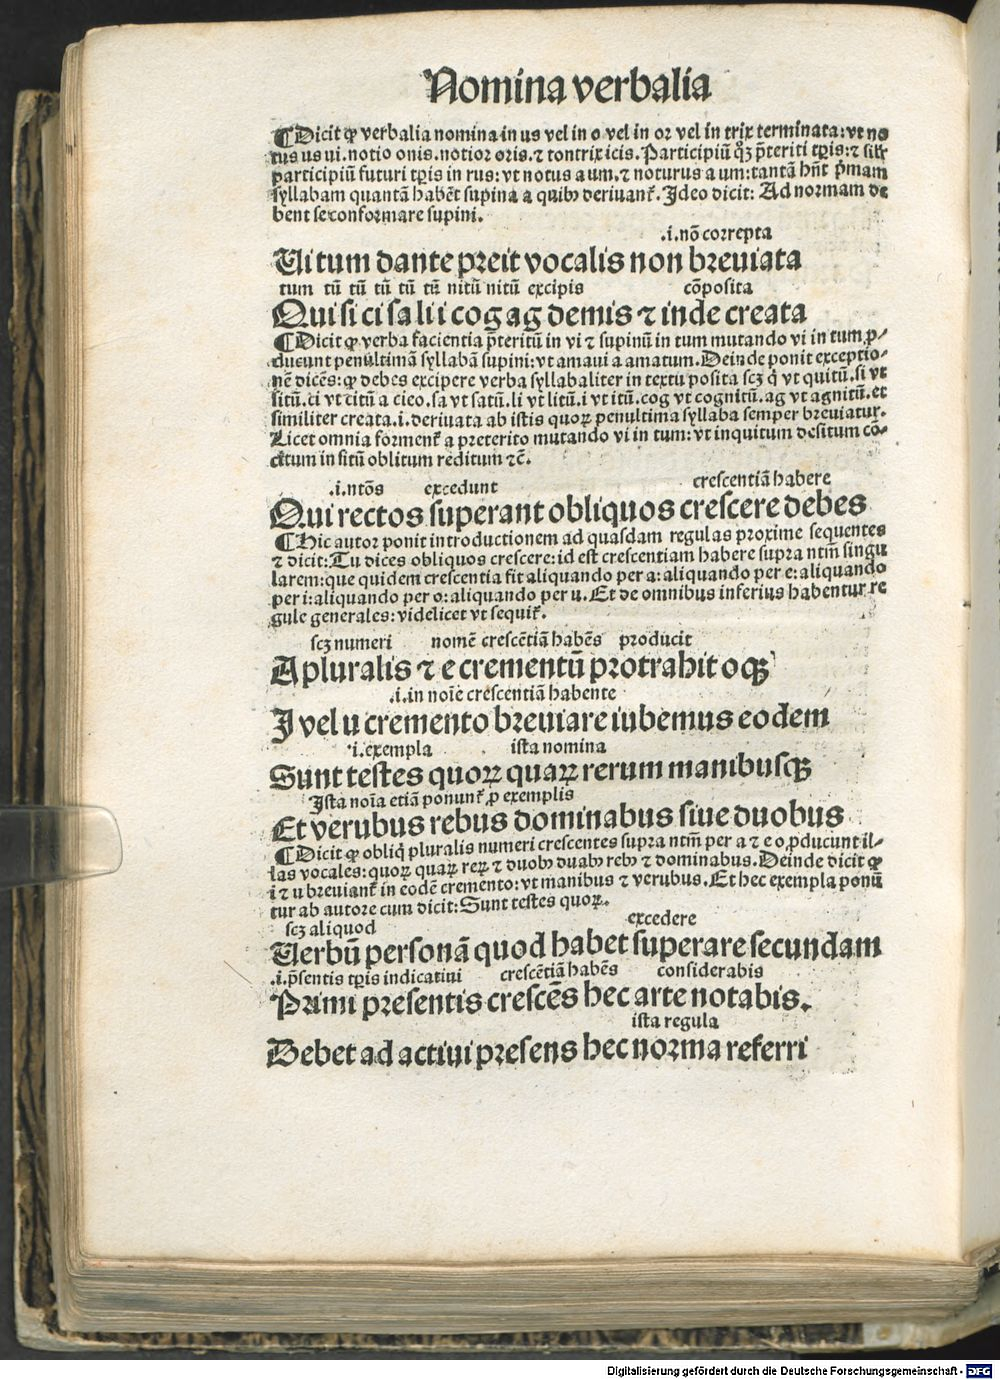 Nomina verbalia
¶Dicit ꝙ verbalia nomina in us vel in o vel in or vel in trix terminata: vt no
tus us ui. notio onis. notior oris. ⁊ tontrix icis. Participiū qꝫ p̄teriti tp̄is: ⁊ silr̄
participiū futuri tp̄is in rus: vt notus a um. ⁊ noturus a um: tantā hn̄t pͥmam
syllabam quantā habēt supina a quibꝰ deriuant᷑. Jdeo dicit: Ad normam de
bent se conformare supini.
.i. nō correpta
Ui tum dante preit vocalis non breuiata
tum tū tū tū tū tū nitū nitū excipis cōposita
Qui si ci sa li i cog ag demis ⁊ inde creata
¶Dicit ꝙ verba facientia p̄teritū in vi ⁊ supinū in tum mutando vi in tum ꝓ-
ducunt penultimā syllabā supini: vt amaui a amatum. Deinde ponit exceptio-
nē dicēs: ꝙ debes excipere verba syllabaliter in textu posita scꝫ qͥ vt quitū. si vt
sitū. ci vt citū a cieo. sa vt satū. li vt litū. i vt itū. cog vt cognitū. ag vt agnitū. et
similiter creata .i. deriuata ab istis quoꝝ penultima syllaba semper breuiatur.
Licet omnia forment᷑ a preterito mutando vi in tum: vt inquitum desitum cō-
citum in sitū oblitum reditum ⁊c̄.
.i. ntōs excedunt crescentiā habere
Qui rectos superant obliquos crescere debes
¶Hic autor ponit introductionem ad quasdam regulas proxime sequentes
⁊ dicit: Tu dices obliquos crescere: id est crescentiam habere supra ntm̄ singu
larem: que quidem crescentia fit aliquando per a: aliquando per e: aliquando
per i: aliquando per o: aliquando per u. Et de omnibus inferius habentur re
gule generales: videlicet vt sequit᷑.
scꝫ numeri nomē crescētiā habēs producit
A pluralis ⁊ e crementū protrahit oqꝫ
.i. in noīe crescentiā habente
J vel u cremento breuiare iubemus eodem
.i. exempla ista nomina
Sunt testes quoꝝ quaꝝ rerum manibusqꝫ
Jsta noīa etiā ponunt᷑ ꝓ exemplis
Et verubus rebus dominabus siue duobus
¶Dicit ꝙ obliqͥ pluralis numeri crescentes supra ntm̄ per a ⁊ e o ꝓducunt il-
las vocales: quoꝝ quaꝝ reꝝ ⁊ duobꝰ duabꝰ rebꝰ ⁊ dominabus. Deinde dicit ꝙ
i ⁊ u breuiant᷑ in eodē cremento: vt manibus ⁊ verubus. Et hec exempla ponū
tur ab autore cum dicit: Sunt testes quoꝝ.
scꝫ aliquod excedere
Uerbū personā quod habet superare secundam
.i. p̄sentis tp̄is indicatiui crescētiā habēs considerabis
Primi presentis crescēs hec arte notabis.
ista regula
Debet ad actiui presens hec norma referri
Digitalisierung gefördert durch die Deutsche Forschungsgemeinschaft - DFG